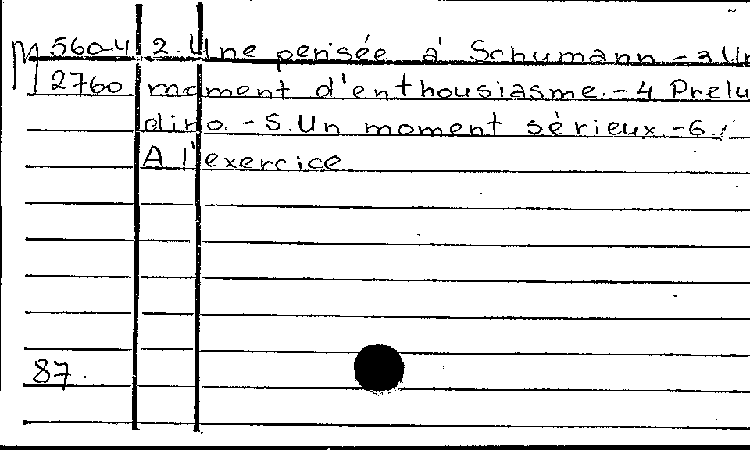 M 5604 2. Une pensée à Schumann - 3 Un
2760 moment d'enthousiasme. - 4 Prelu
dino. - 5. Un moment sèrieux. - 6.
A l'exercice
87.